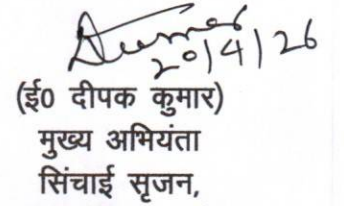 20/4/26
(ई0 दीपक कुमार)
मुख्य अभियंता
सिंचाई सृजन,